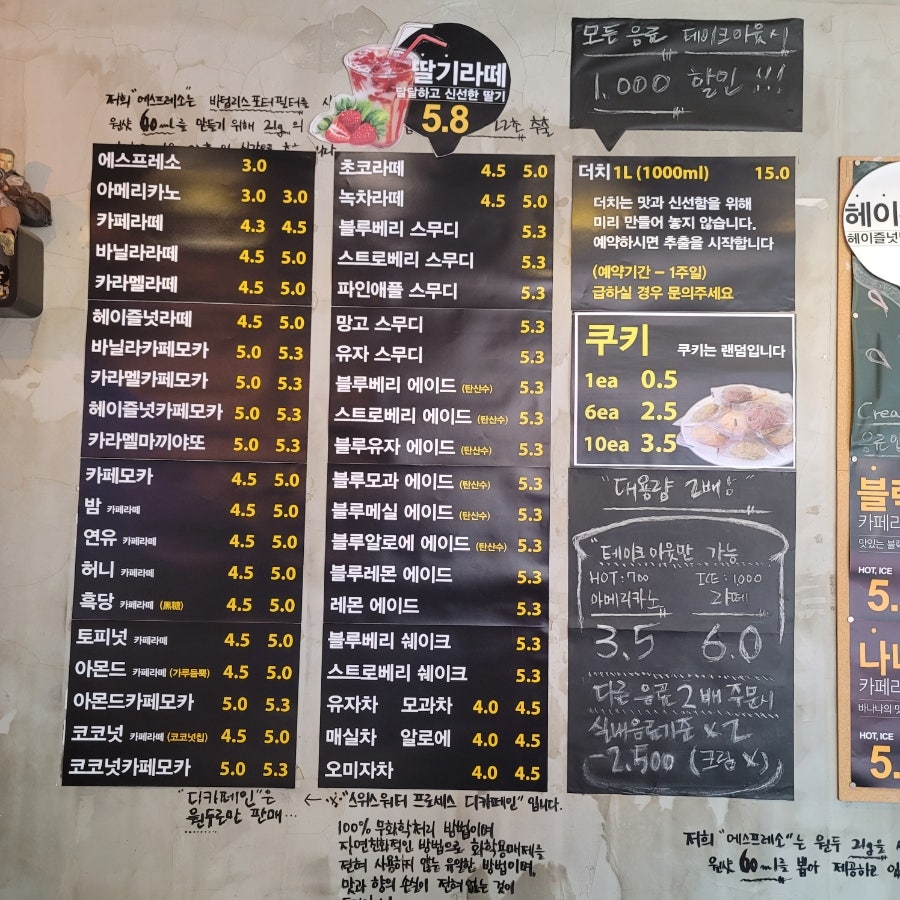 저희 "에스프레소"는 바텀리스포터필터를
원샷 60ml를 만들기 위해 21g 의
딸기라떼
달달하고 신선한 딸기
5.8
모든 음료 테이크아웃시
1,000 할인 !!!
에스프레소 3.0
아메리카노 3.0 3.0
카페라떼 4.3 4.5
바닐라라떼 4.5 5.0
카라멜라떼 4.5 5.0
헤이즐넛라떼 4.5 5.0
바닐라카페모카 5.0 5.3
카라멜카페모카 5.0 5.3
헤이즐넛카페모카 5.0 5.3
카라멜마끼야또 5.0 5.3
카페모카 4.5 5.0
밤 카페라떼 4.5 5.0
연유 카페라떼 4.5 5.0
허니 카페라떼 4.5 5.0
흑당 카페라떼 (黑糖) 4.5 5.0
토피넛 카페라떼 4.5 5.0
아몬드 카페라떼 (가루듬뿍) 4.5 5.0
아몬드카페모카 5.0 5.3
코코넛 카페라떼 (코코넛칩) 4.5 5.0
코코넛카페모카 5.0 5.3
초코라떼 4.5 5.0
녹차라떼 4.5 5.0
블루베리 스무디 5.3
스트로베리 스무디 5.3
파인애플 스무디 5.3
망고 스무디 5.3
유자 스무디 5.3
블루베리 에이드 (탄산수) 5.3
스트로베리 에이드 (탄산수) 5.3
블루유자 에이드 (탄산수) 5.3
블루모과 에이드 (탄산수) 5.3
블루메실 에이드 (탄산수) 5.3
블루알로에 에이드 (탄산수) 5.3
블루레몬 에이드 5.3
레몬 에이드 5.3
블루베리 쉐이크 5.3
스트로베리 쉐이크 5.3
유자차 모과차 4.0 4.5
매실차 알로에 4.0 4.5
오미자차 4.0 4.5
더치 1L (1000ml) 15.0
더치는 맛과 신선함을 위해
미리 만들어 놓지 않습니다.
예약하시면 추출을 시작합니다
(예약기간 – 1주일)
급하실 경우 문의주세요
쿠키 쿠키는 랜덤입니다
1ea 0.5
6ea 2.5
10ea 3.5
"대용량 2배"
"테이크아웃만 가능
HOT:700 ICE:1,000
아메리카노 라떼
3.5 6.0
다른 음료 2배 주문시
실내음료기준 x2
-2,500 (크림 x)
헤이
헤이즐넛
Crea
음료
카페라
HOT, ICE
5.
나나
카페라
바나나의 맛
HOT, ICE
5.
"디카페인"은
원두로만 판매...
← ※ "스위스워터 프로세스 디카페인" 입니다.
100% 무화학처리 방법이며
자연친화적인 방법으로 화학용매제를
전혀 사용하지 않는 유일한 방법이며,
맛과 향의 손실이 전혀 없는 것이
저희 "에스프레소"는 원두 21g을
원샷 60ml를 뽑아 제공하고